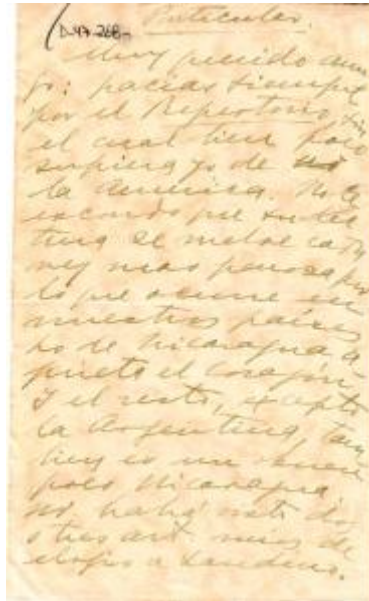 D-47-268-
Particular.
Muy querido ami
go: gracias siempre
por el Repertorio, sin
el cual bien poco
supiera yo de
la América. No le
escondo que su lec
tura se me hace cada
vez más penosa por
lo que ocurre en
nuestros países
Lo de Nicaragua a
prieta el corazón,
y el resto, excepto
la Argentina, tam
bién es un buen
poco Nicaragua.
Ud. habrá visto dos
o tres art. míos de
elogio a Sandino.